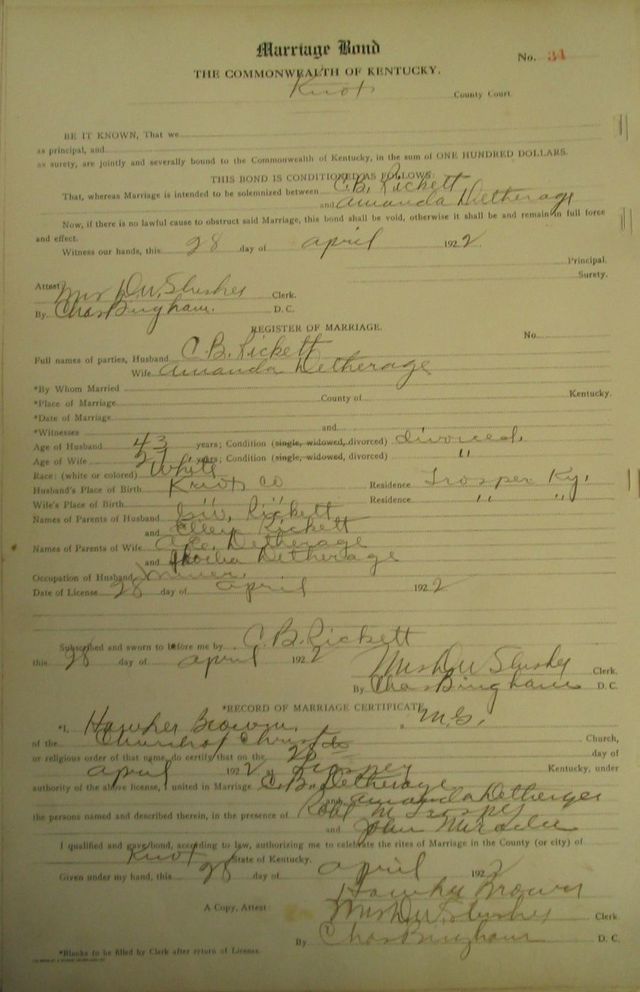 Marriage Bond
No. 31
THE COMMONWEALTH OF KENTUCKY.
Knox County Court.
BE IT KNOWN, That we
as principal, and
as surety, are jointly and severally bound to the Commonwealth of Kentucky, in the sum of ONE HUNDRED DOLLARS.
THIS BOND IS CONDITIONED AS FOLLOWS:
That, whereas Marriage is intended to be solemnized between C.B. Rickett
and Amanda Detherage
Now, if there is no lawful cause to obstruct said Marriage, this bond shall be void, otherwise it shall be and remain in full force
and effect.
Witness our hands, this 28 day of April 1922.
Principal.
Surety.
Attest: Mrs D.W. Slusher Clerk.
By Chas Bingham. D. C.
REGISTER OF MARRIAGE.
No.
Full names of parties, Husband C.B. Rickett
Wife Amanda Detherage
*By Whom Married
*Place of Marriage County of Kentucky.
*Date of Marriage
*Witnesses and
Age of Husband 43 years; Condition (single, widowed, divorced) divorced,
Age of Wife years; Condition (single, widowed, divorced) "
Race: (white or colored) White
Husband's Place of Birth Knox Co Residence Trosper Ky,
Wife's Place of Birth " " Residence " "
Names of Parents of Husband Rickett
and Ellen Rickett
Names of Parents of Wife Detherage
and Detherage
Occupation of Husband Miner.
Date of License 28 day of April 1922
Subscribed and sworn to before me by C.B. Rickett
this 28 day of April 1922
Mrs D W Slusher Clerk.
By Chas Bingham D. C.
*RECORD OF MARRIAGE CERTIFICATE.
*I, Brown, M.G.
of the Church of Christ Church,
or religious order of that name, do certify that on the 28 day of
April 1922 at Trosper Kentucky, under
authority of the above license, I united in Marriage C.B. Detherage
and Amanda Detherger
the persons named and described therein, in the presence of Trosper
and John
I qualified and gave bond, according to law, authorizing me to celebrate the rites of Marriage in the County (or city) of
Knox State of Kentucky.
Given under my hand, this 28 day of April 1922
Brown
A Copy, Attest Mrs D W Slusher Clerk
By Chas Bingham D. C.
*Blanks to be filled by Clerk after return of License.